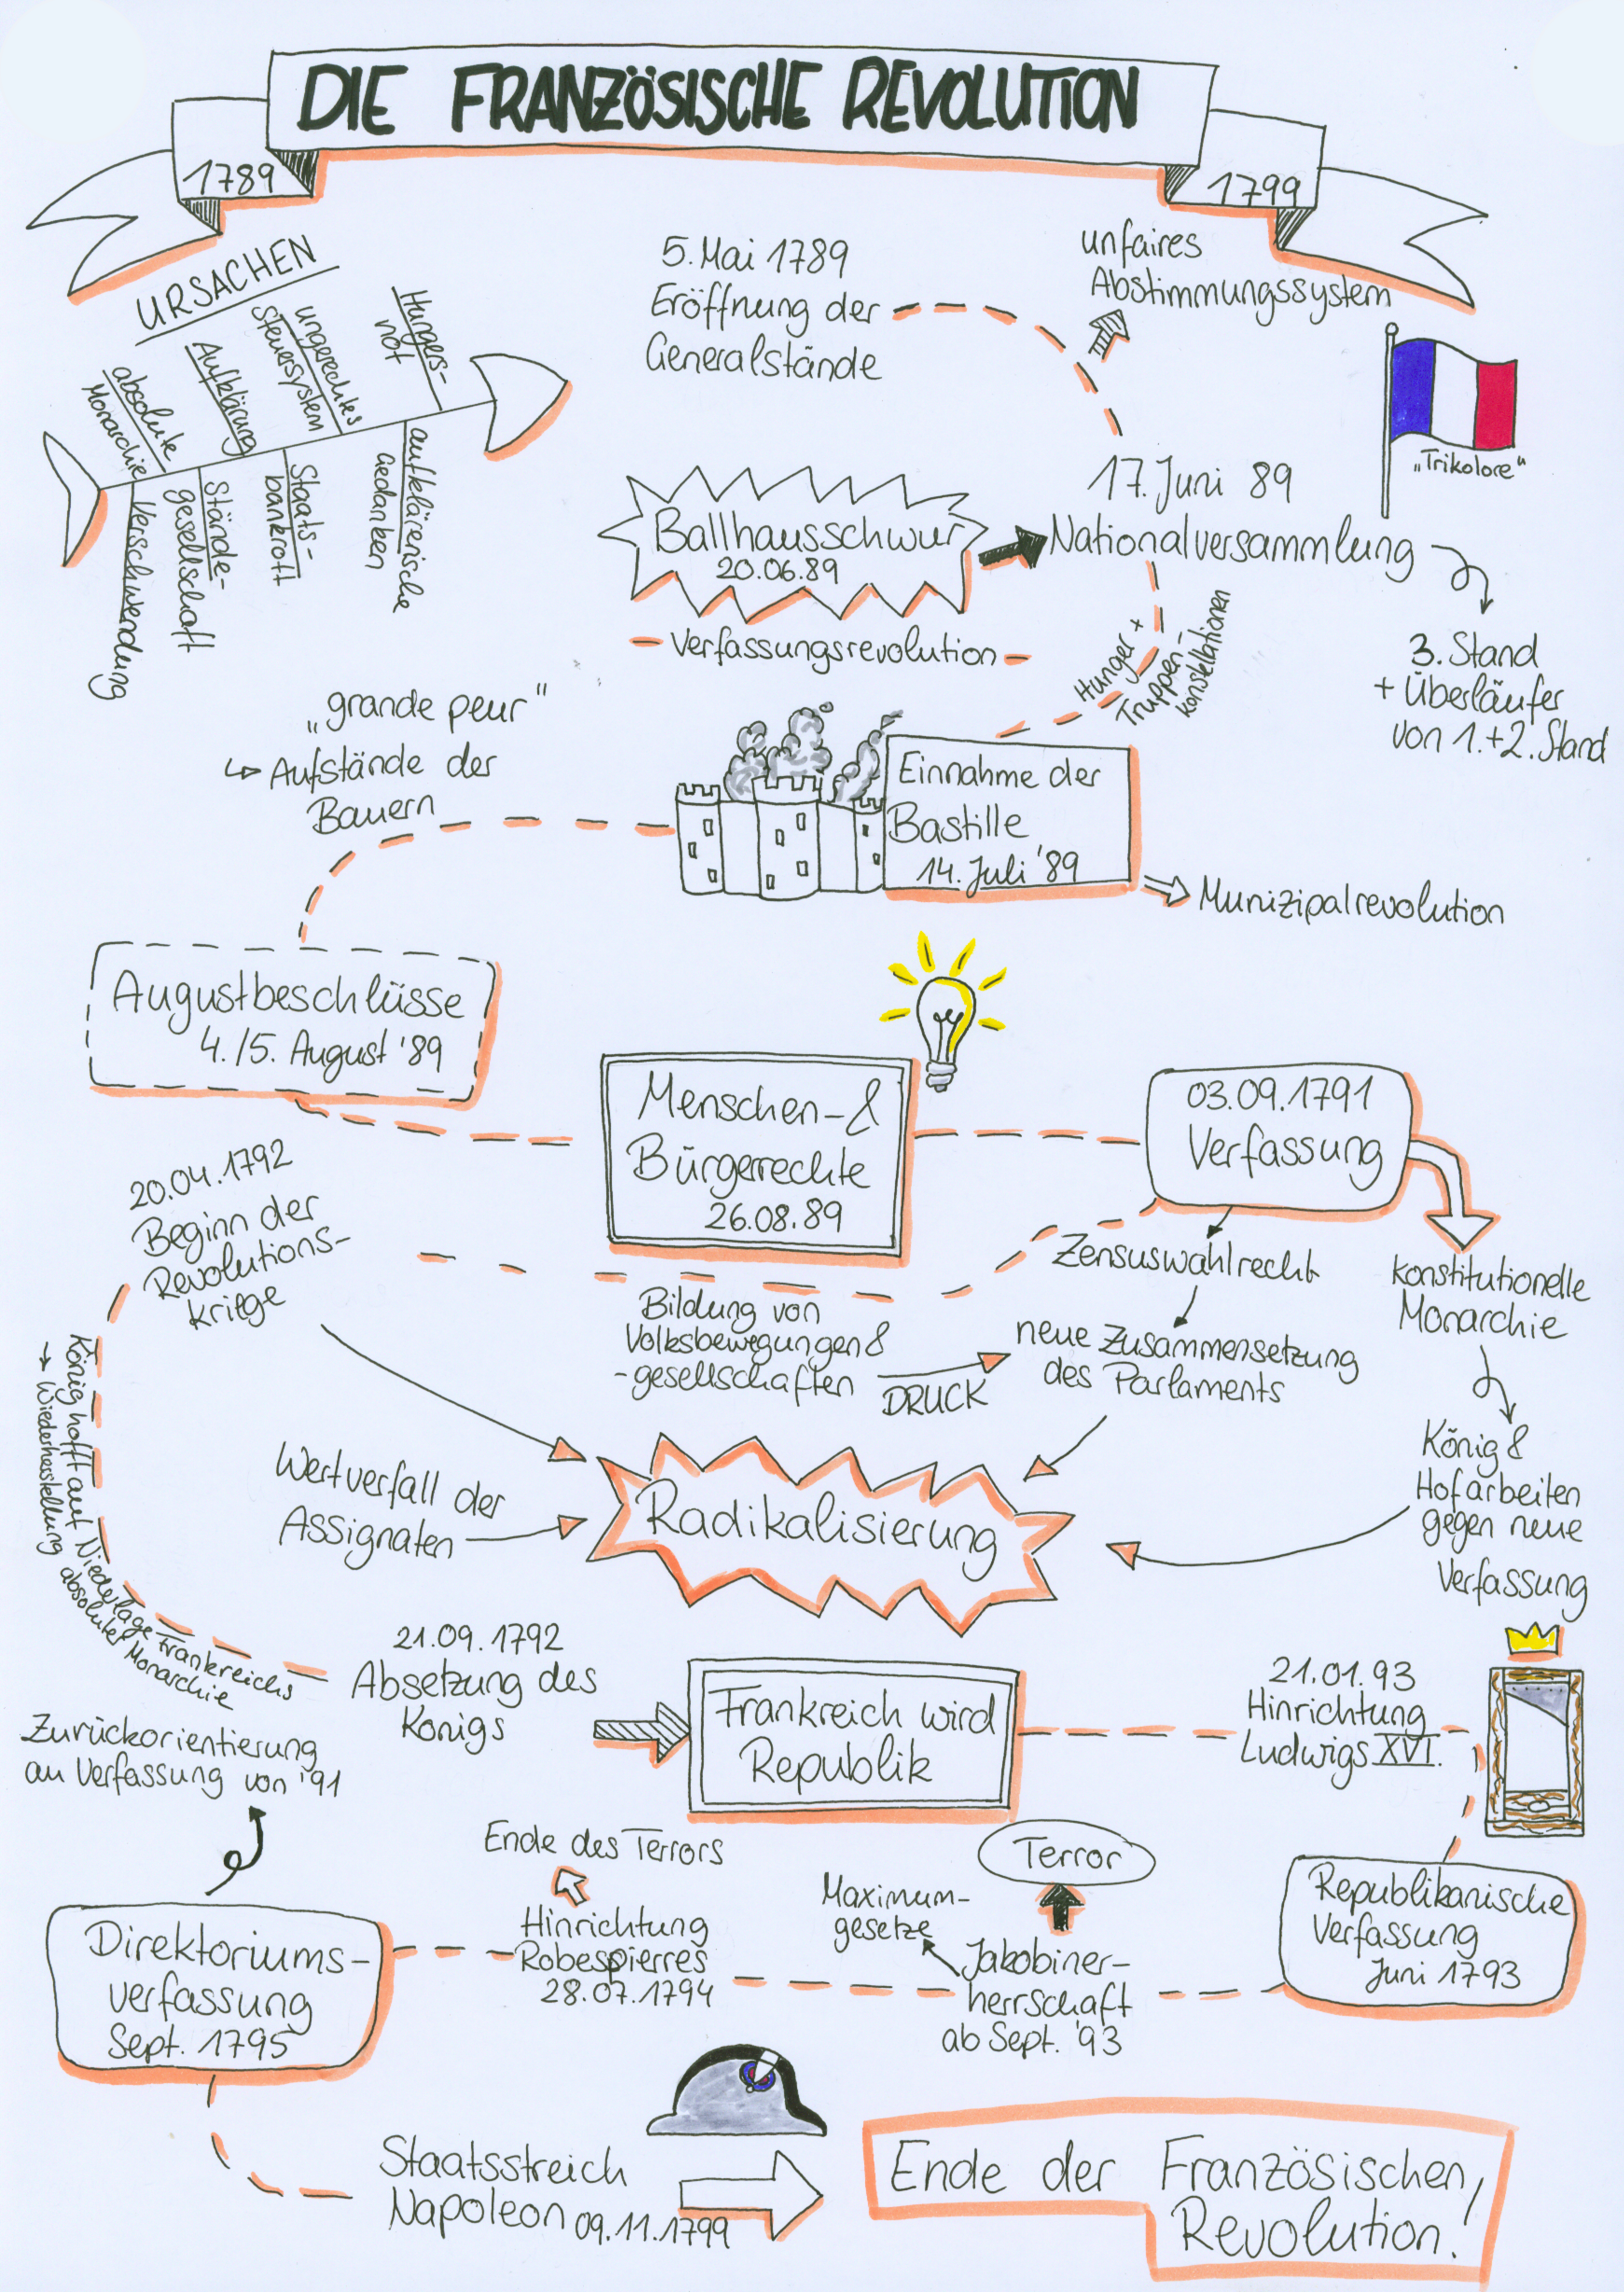 DIE FRANZÖSISCHE REVOLUTION
1789
1799
URSACHEN
absolute
Monarchie
Aufklärung
ungerechtes
Steuersystem
Hungers-
not
Verschwendung
Stände-
gesellschaft
Staats-
bankrott
aufklärerische
Gedanken
5. Mai 1789
Eröffnung der
Generalstände
unfaires
Abstimmungssystem
„Trikolore“
17. Juni 89
Nationalversammlung
Ballhausschwur
20.06.89
Verfassungsrevolution
3. Stand
+ Überläufer
von 1.+2. Stand
Hunger +
Truppen-
konstellationen
„grande peur“
↳ Aufstände der
Bauern
Einnahme der
Bastille
14. Juli '89
Munizipalrevolution
Augustbeschlüsse
4./5. August '89
Menschen- &
Bürgerrechte
26.08.89
03.09.1791
Verfassung
Zensuswahlrecht
konstitutionelle
Monarchie
20.04.1792
Beginn der
Revolutions-
kriege
Bildung von
Volksbewegungen &
-gesellschaften
DRUCK
neue Zusammensetzung
des Parlaments
König &
Hof arbeiten
gegen neue
Verfassung
Wertverfall der
Assignaten
Radikalisierung
König hofft auf Niederlage Frankreichs
→ Wiederherstellung absoluter Monarchie
21.09.1792
Absetzung des
Königs
Frankreich wird
Republik
21.01.93
Hinrichtung
Ludwigs XVI.
Republikanische
Verfassung
Juni 1793
Terror
Maximum-
gesetze
Jakobiner-
herrschaft
ab Sept. '93
Ende des Terrors
Hinrichtung
Robespierres
28.07.1794
Zurückorientierung
an Verfassung von '91
Direktoriums-
verfassung
Sept. 1795
Staatsstreich
Napoleon 09.11.1799
Ende der Französischen
Revolution!